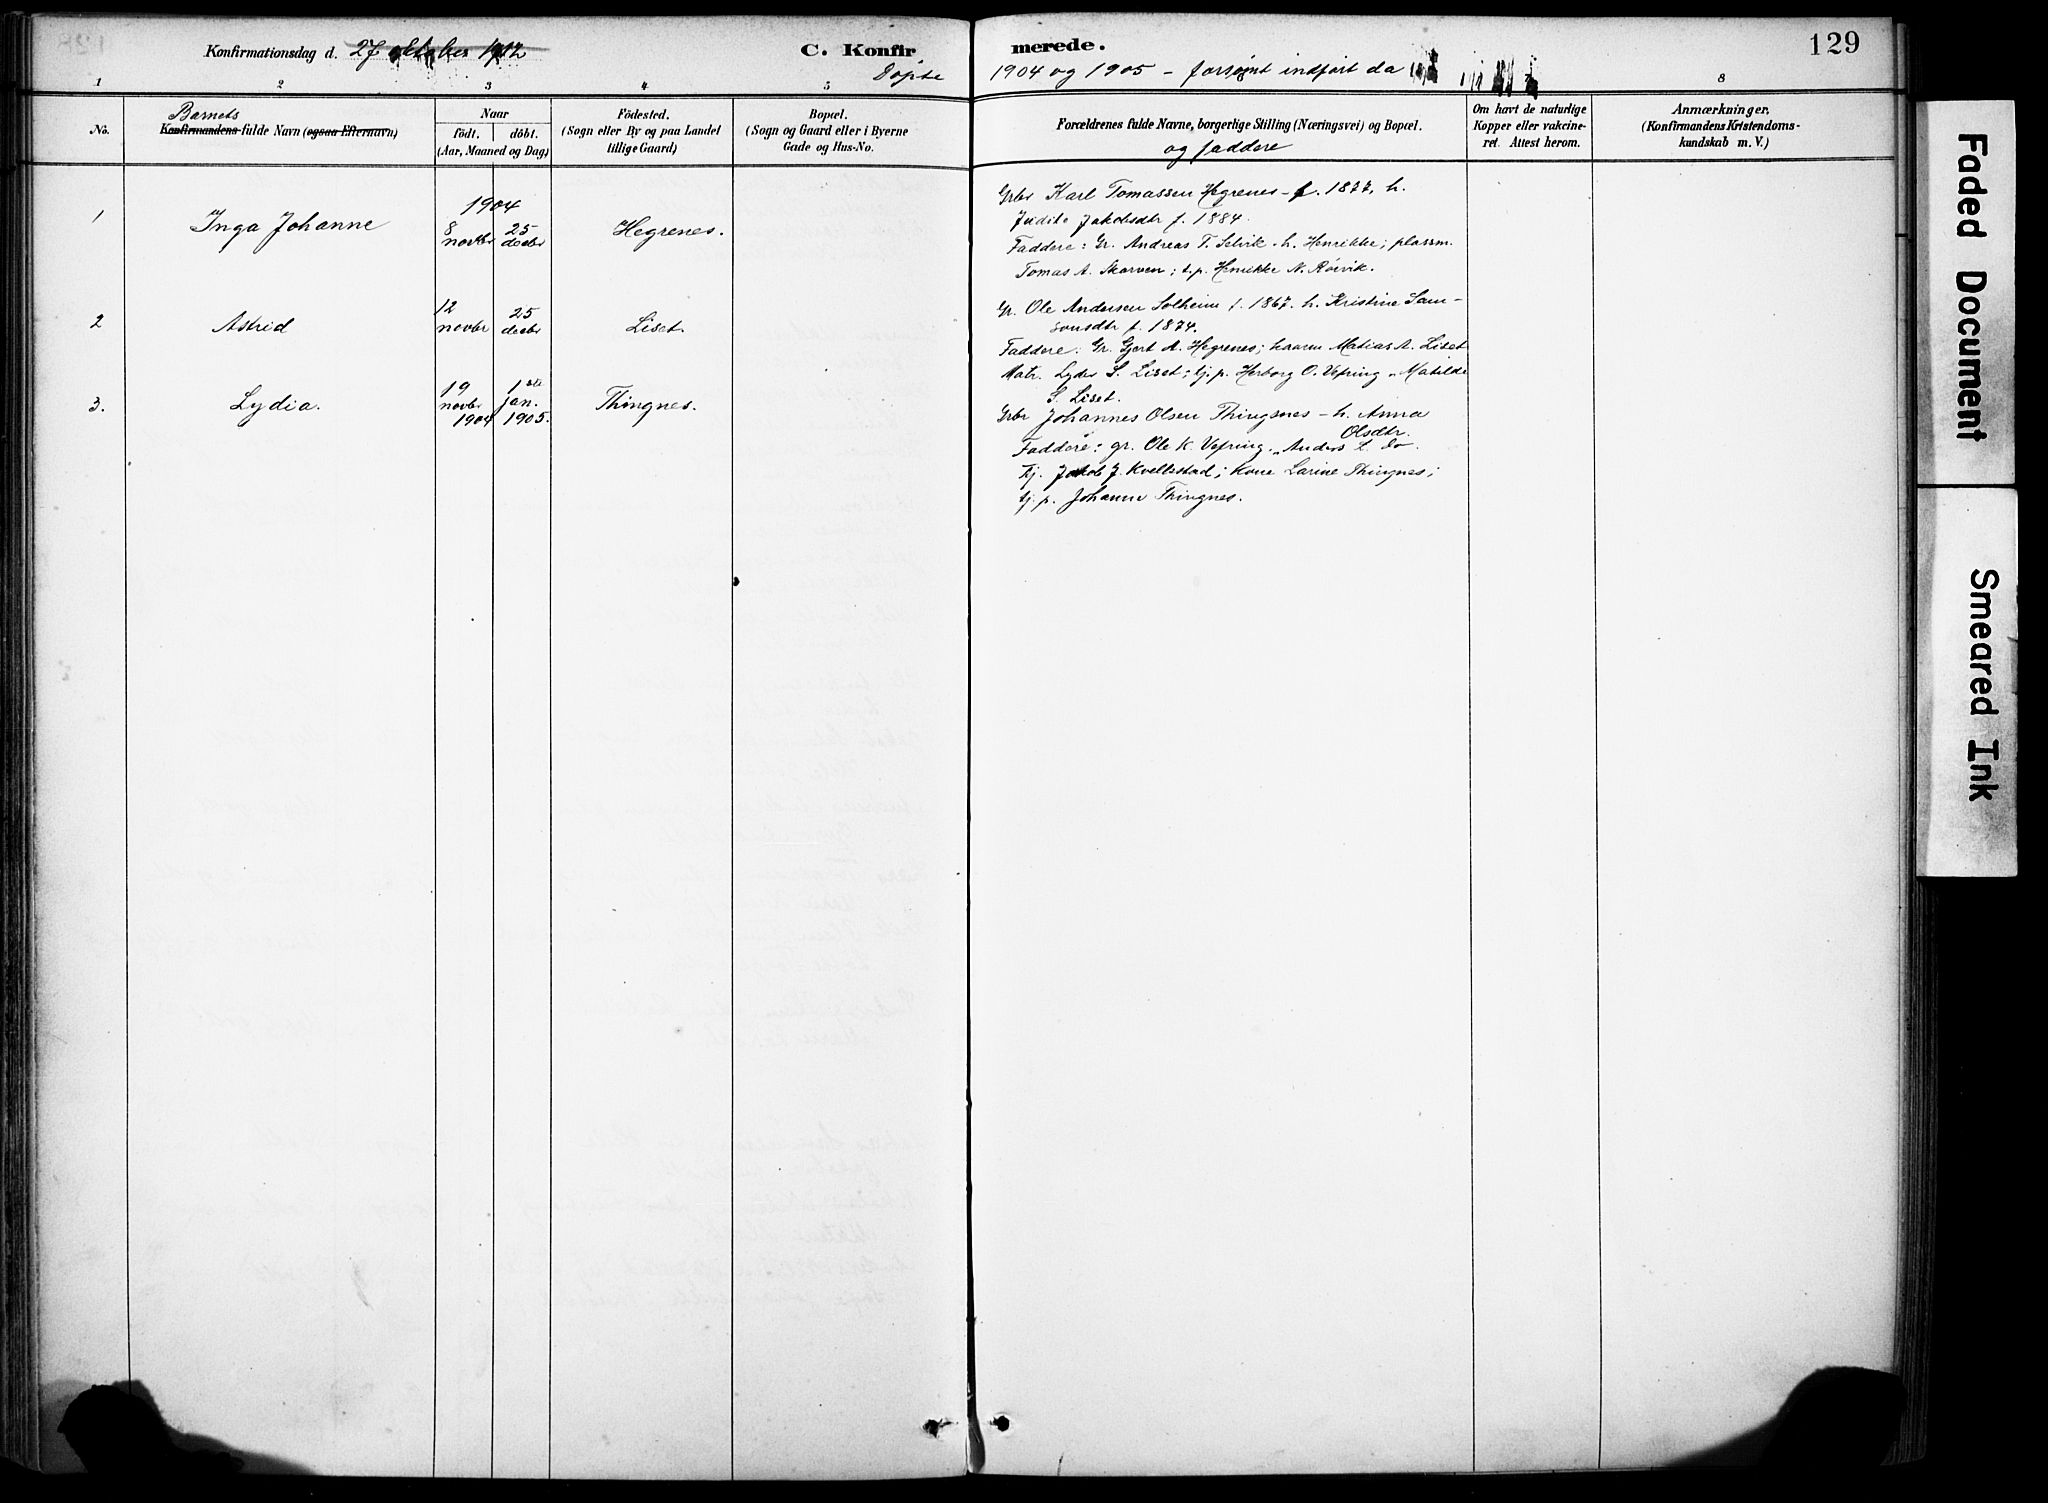 129
Konfirmationsdag d. 27 oktober 1912
C. Konfirmerede.
Döpte 1904 og 1905 – forsømt indført da
1 2 3 4 5 7 8
No.
Barnets
Konfirmandens fulde Navn (ogsaa Efternavn)
Naar
födt. döbt.
(Aar, Maaned og Dag)
Födested.
(Sogn eller By og paa Landet
tillige Gaard)
Bopæl.
(Sogn og Gaard eller i Byerne
Gade og Hus-No.
Forældrenes fulde Navne, borgerlige Stilling (Næringsvei) og Bopæl.
og faddere
Om havt de naturlige
Kopper eller vakcine-
ret. Attest herom.
Anmærkninger.
(Konfirmandens Kristendoms-
kundskab m. V.)
1 Inga Johanne
1904
8 novbr 25 decbr
Hegrenes.
Grbr Karl Tomassen Hegrenes – f. 1877, h.
Judite Jakobsdtr f. 1884.
Faddere: Gr. Andreas T. Selvik – h. Henrikke; plassm.
Tomas A. Skorven; t.p. Henrikke N. Röivik.
2 Astrid
12 novbr 25 decbr
Liset.
Gr. Ole Andersen Solheim f. 1867. h. Kristine Sam-
sonsdtr f. 1874.
Faddere: Gr. Gjert A. Hegrenes; haavm Matias A. Liset
Matr. Lyder S. Liset; tj.p. Herborg O. Vefring, Matilde
S. Liset.
3. Lydia.
19 novbr 1904 1ste jan. 1905.
Thingnes.
Grbr Johannes Olsen Thingsnes – h. Anna
Olsdtr.
Faddere: gr. Ole K. Vefring. Anders L. do.
Tj. Jakob J. Kvellestad; Kone Larine Thingnes;
tj.p. Johanne Thingnes.
Faded Document
Smeared Ink